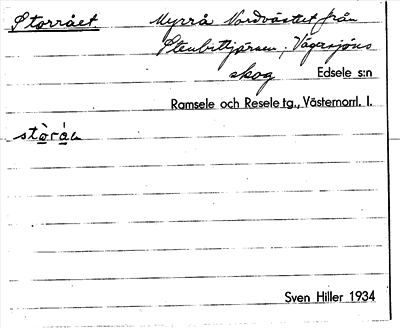 Storrået Myrrå Nordväst från
Stenbittjärnen, Vägersjöns
skog Edsele s:n
Ramsele och Resele tg., Västernorrl. l.
Sven Hiller 1934